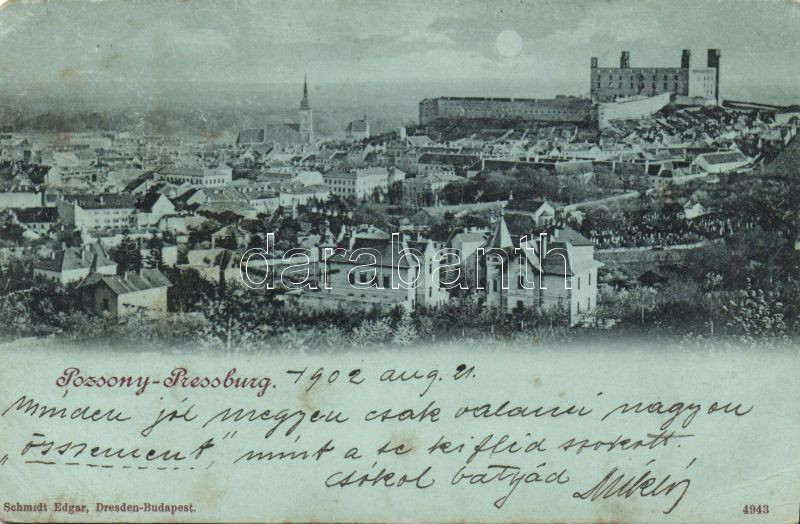 darabanth
Pozsony-Pressburg. 1902 aug. 21.
Minden jól megyen csak valami nagyon
„összement" mint a te kiflid szokott.
csókol bátyád Miklós
Schmidt Edgar, Dresden-Budapest.
4943